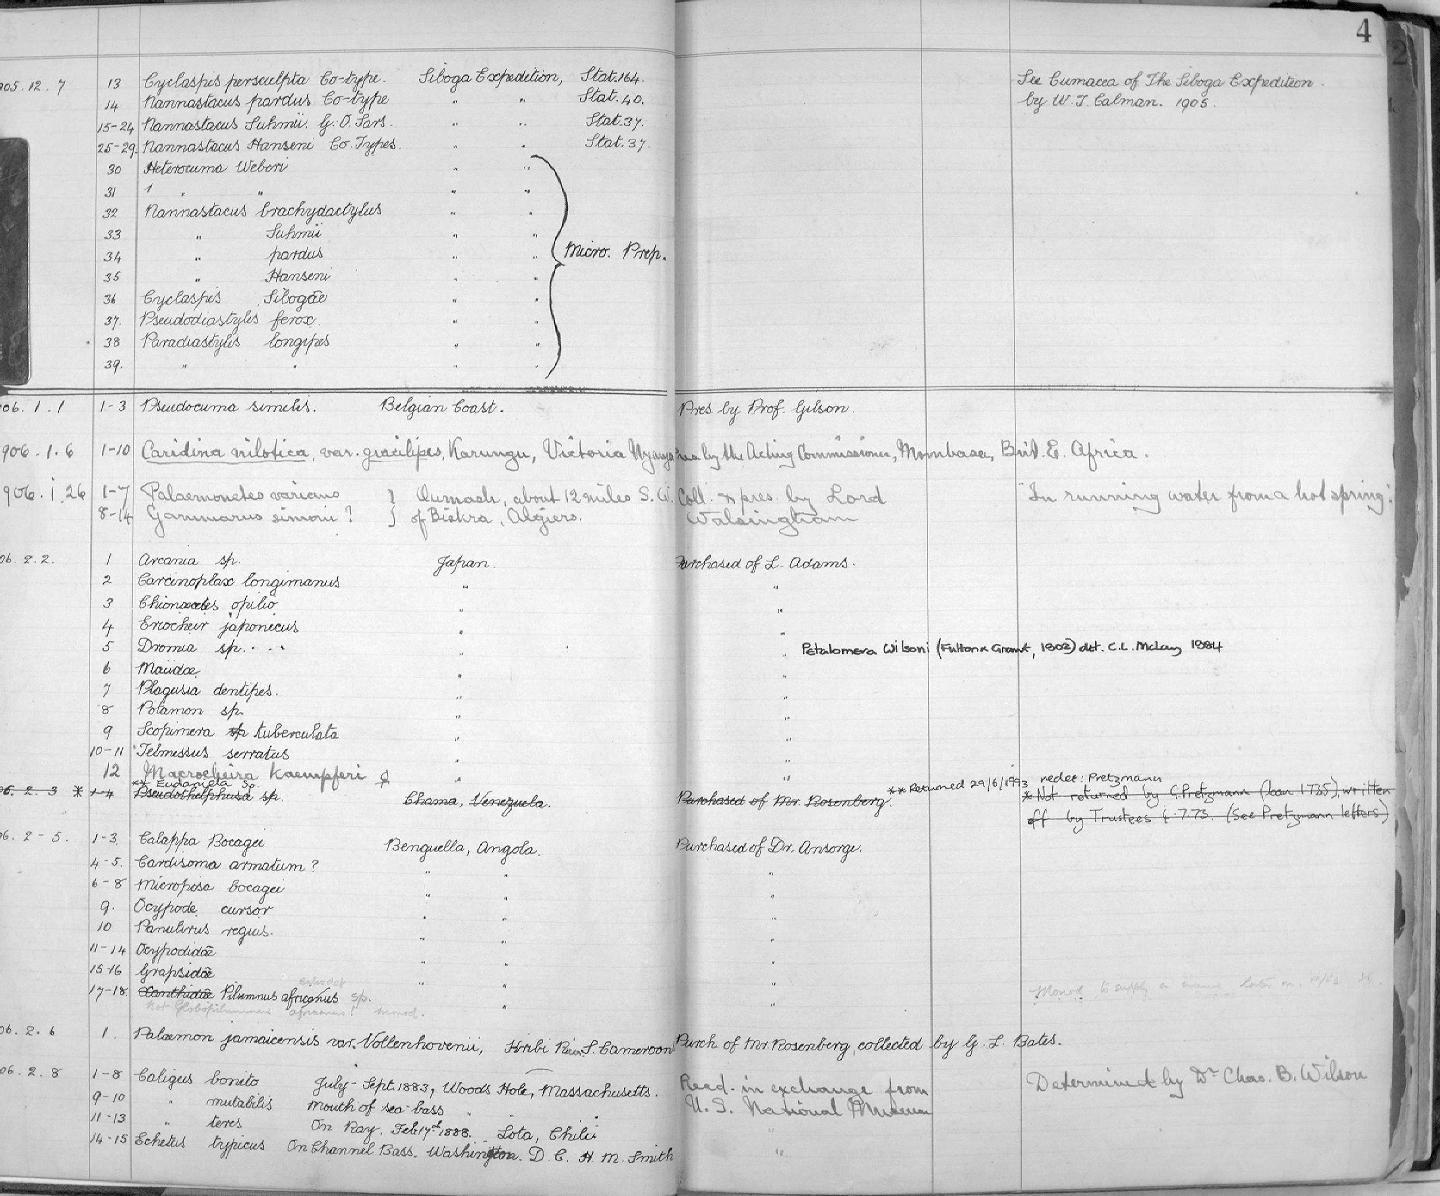 4
905.12.7 13 Cyclaspis persculpta Co-type. Siboga Expedition, Stat. 164. See Cumacea of The Siboga Expedition
14 Nannastacus pardus Co-type " " Stat. 40. by W. T. Calman. 1905.
15-24 Nannastacus Suhmii. G. O. Sars. " " Stat. 37.
25-29 Nannastacus Hanseni Co. Types. " " Stat. 37
30 Heterocuma Weberi " "
31 " " " "
32 Nannastacus brachydactylus " "
33 " Suhmii " "
34 " pardus " " Micro. Prep.
35 " Hanseni " "
36 Cyclaspis Sibogae " "
37. Pseudodiastylis ferox. " "
38 Paradiastylis longipes " "
39. " " " "
06.1.1 1-3 Pseudocuma similis. Belgian Coast. Pres by Prof. Gilson.
906.1.6 1-10 Caridina nilotica, var. gracilipes, Karungu, Victoria Nyanza by the Acting Commissioner, Mombasa, Brit. E. Africa.
906.1.26 1-7 Palaemonetes varians } Oumash, about 12 miles S.W. Coll. & pres. by Lord "In running water from a hot spring".
8-14 Gammarus simoni ? } of Biskra, Algiers. Walsingham
06.2.2. 1 Arcania sp. Japan. Purchased of L. Adams.
2 Carcinoplax longimanus " "
3 Chionoecetes opilio " "
4 Eriocheir japonicus " "
5 Dromia sp. . . . " " Petalomera Wilsoni (Fulton & Grant, 1902) det. C.L. McLay 1984
6 Maiidae. " "
7 Plagusia dentipes. " "
8 Potamon sp. " "
9 Scopimera sp tuberculata " "
10-11 Telmessus serratus " "
12 Macrocheira Kaempferi ♂ " "
** Eudaniela sp. ** Returned 29/6/1993 redet: Pretzmann
06.2.3 * 1-4 Pseudothelphusa sp. Chama, Venezuela. Purchased of Mr. Rosenberg. * Not returned by G. Pretzmann (loan 1735), written
off by Trustees 4.7.75 (See Pretzmann letters)
06.2-5. 1-3 Calappa Bocagei Benguella, Angola. Purchased of Dr. Ansorge.
4-5. Cardisoma armatum ? " " "
6-8 Micropisa bocagei " " "
9. Ocypode cursor " " "
10 Panulirus regius. " " "
11-14 Ocypodidae " " "
15-16 Grapsidae " " "
17-18. Xanthidae Pilumnus africanus sp. " " "
not Globopilumnus africanus!
06.2.6 1. Palaemon jamaicensis var. Vollenhovenii, Kribi River, S. Cameroon Purch of Mr Rosenberg, collected by G. L. Bates.
06.2.8 1-8 Caligus bonito July-Sept. 1883, Woods Hole, Massachusetts. Recd. in exchange from Determined by Dr Chas. B. Wilson
9-10 " mutabilis Mouth of sea-bass " " U. S. National Museum
11-13 " teres On Ray. Feb 17th 1888. Lota, Chili "
14-15 Echetus typicus On Channel Bass. Washington. D. C. H. M. Smith "